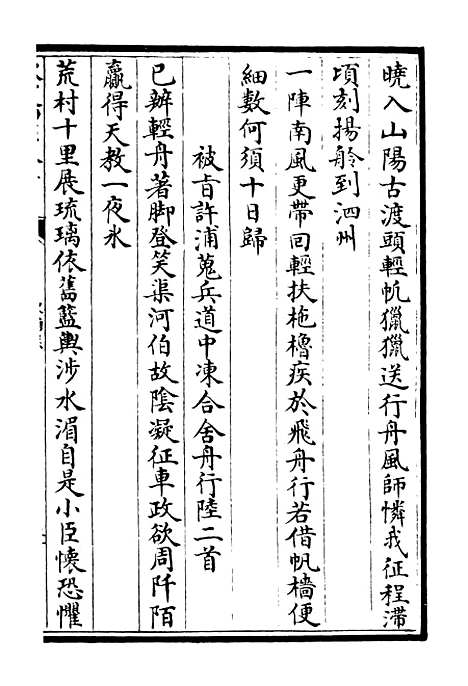 曉入山陽古渡頭輕帆獵獵送行舟風師憐我征程滯
頃刻揚舲到泗州
一陣南風更帶回輕扶柂櫓疾於飛舟行若借帆檣便
細數何須十日歸
被㫖許浦蒐兵道中凍合舍舟行陸二首
已辦輕舟著脚登笑渠河伯故陰凝征車政欲周阡陌
贏得天教一夜氷
荒村十里展琉璃依舊籃輿涉水湄自是小臣懷恐懼